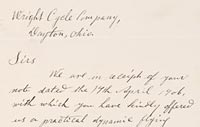 Wright Cycle Company,
Dayton, Ohio
Sirs
We are in receipt of your
note dated the 17th April 1906,
with which you have kindly offered
us a practical dynamic flying